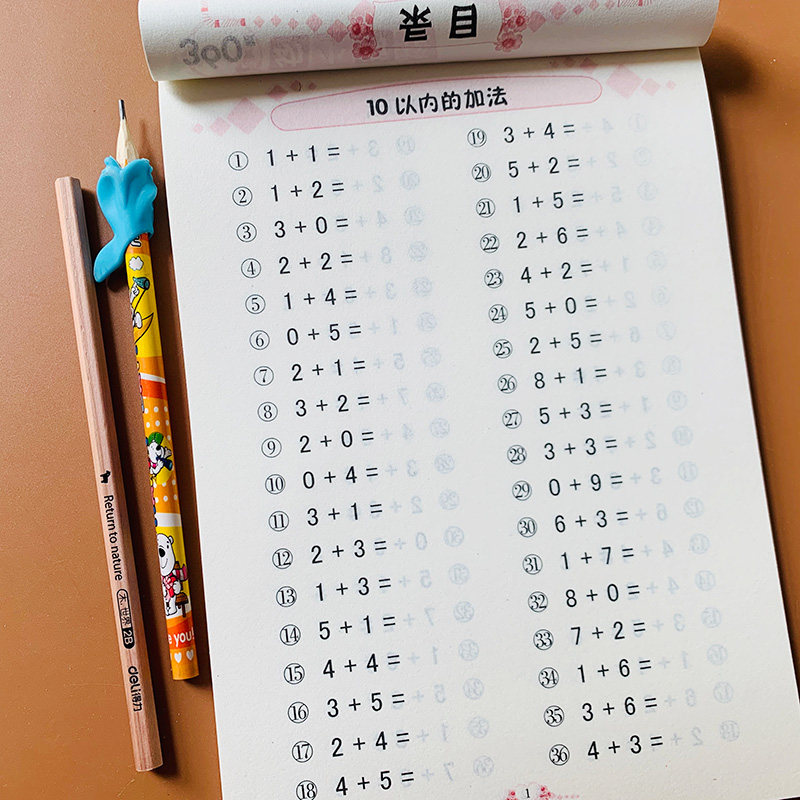 目录
10 以内的加法
① 1 + 1 =
② 1 + 2 =
③ 3 + 0 =
④ 2 + 2 =
⑤ 1 + 4 =
⑥ 0 + 5 =
⑦ 2 + 1 =
⑧ 3 + 2 =
⑨ 2 + 0 =
⑩ 0 + 4 =
⑪ 3 + 1 =
⑫ 2 + 3 =
⑬ 1 + 3 =
⑭ 5 + 1 =
⑮ 4 + 4 =
⑯ 3 + 5 =
⑰ 2 + 4 =
⑱ 4 + 5 =
⑲ 3 + 4 =
⑳ 5 + 2 =
㉑ 1 + 5 =
㉒ 2 + 6 =
㉓ 4 + 2 =
㉔ 5 + 0 =
㉕ 2 + 5 =
㉖ 8 + 1 =
㉗ 5 + 3 =
㉘ 3 + 3 =
㉙ 0 + 9 =
㉚ 6 + 3 =
㉛ 1 + 7 =
㉜ 8 + 0 =
㉝ 7 + 2 =
㉞ 1 + 6 =
㉟ 3 + 6 =
㊱ 4 + 3 =
1
Return to nature
2B
deli 得力
you!